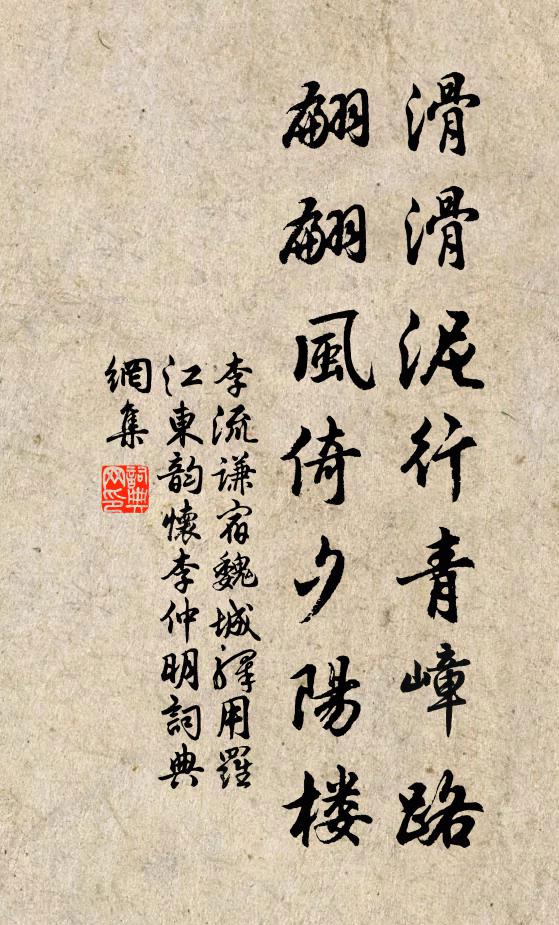 滑滑泥行青嶂路
翩翩風倚夕陽楼
李流谦宿魏城驛用羅
江東韵懷李仲明詞典
網集
詞典
网印